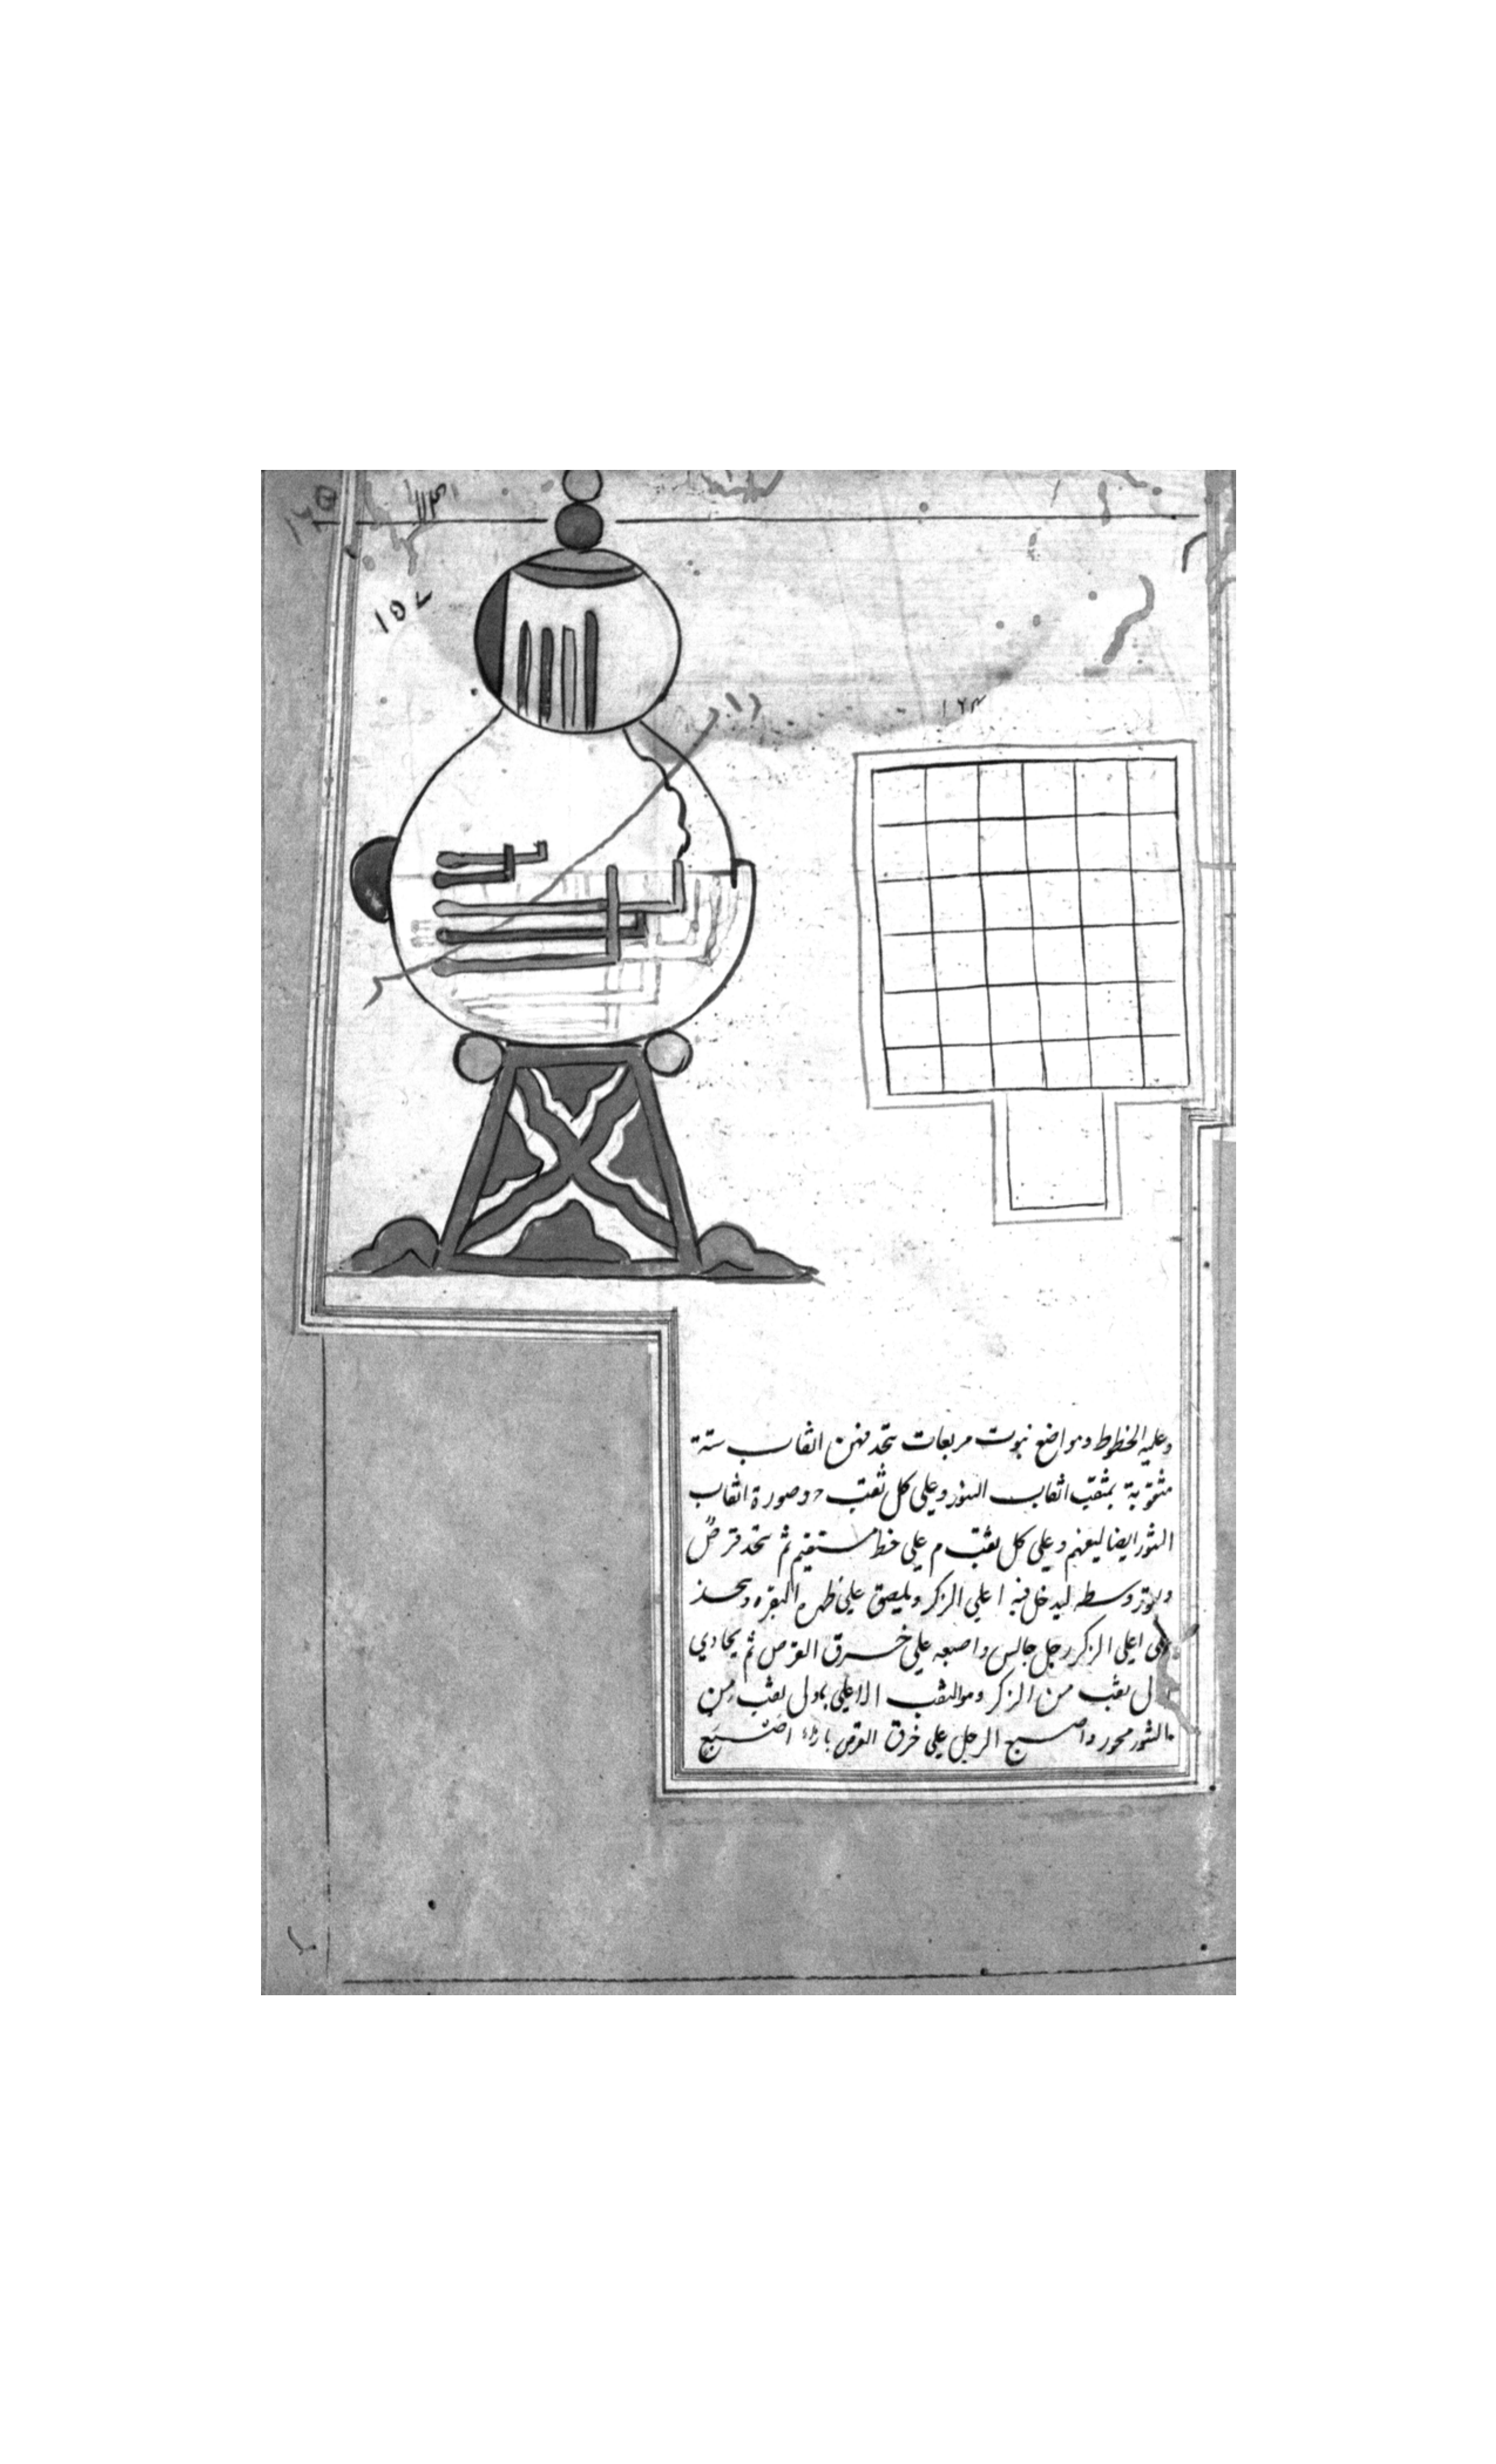 ١٦٥
١١٣
١٥٧
١٦٣
وعليه الخطوط ومواضع نبوت مربعات تتخد فيهن اثقاب ستة
مثقوبة بمثقب اثقاب الثور وعلى كل ثقب وصورة اثقاب
الثور ايضا ليفهم وعلى كل ثقب م على خط مستقيم ثم تتخد قرص
وسطه ليدخل فيه اعلى الزكر ويلصق على ظهر البقره ويتخذ
على اعلى الزكر رجل جالس واصبعه على خرق القرص ثم يحادي
ثقب من الزكر وهو الثقب الاعلى باول ثقب من
الثور محور واصبع الرجل على خرق القرص بازاء اصبع